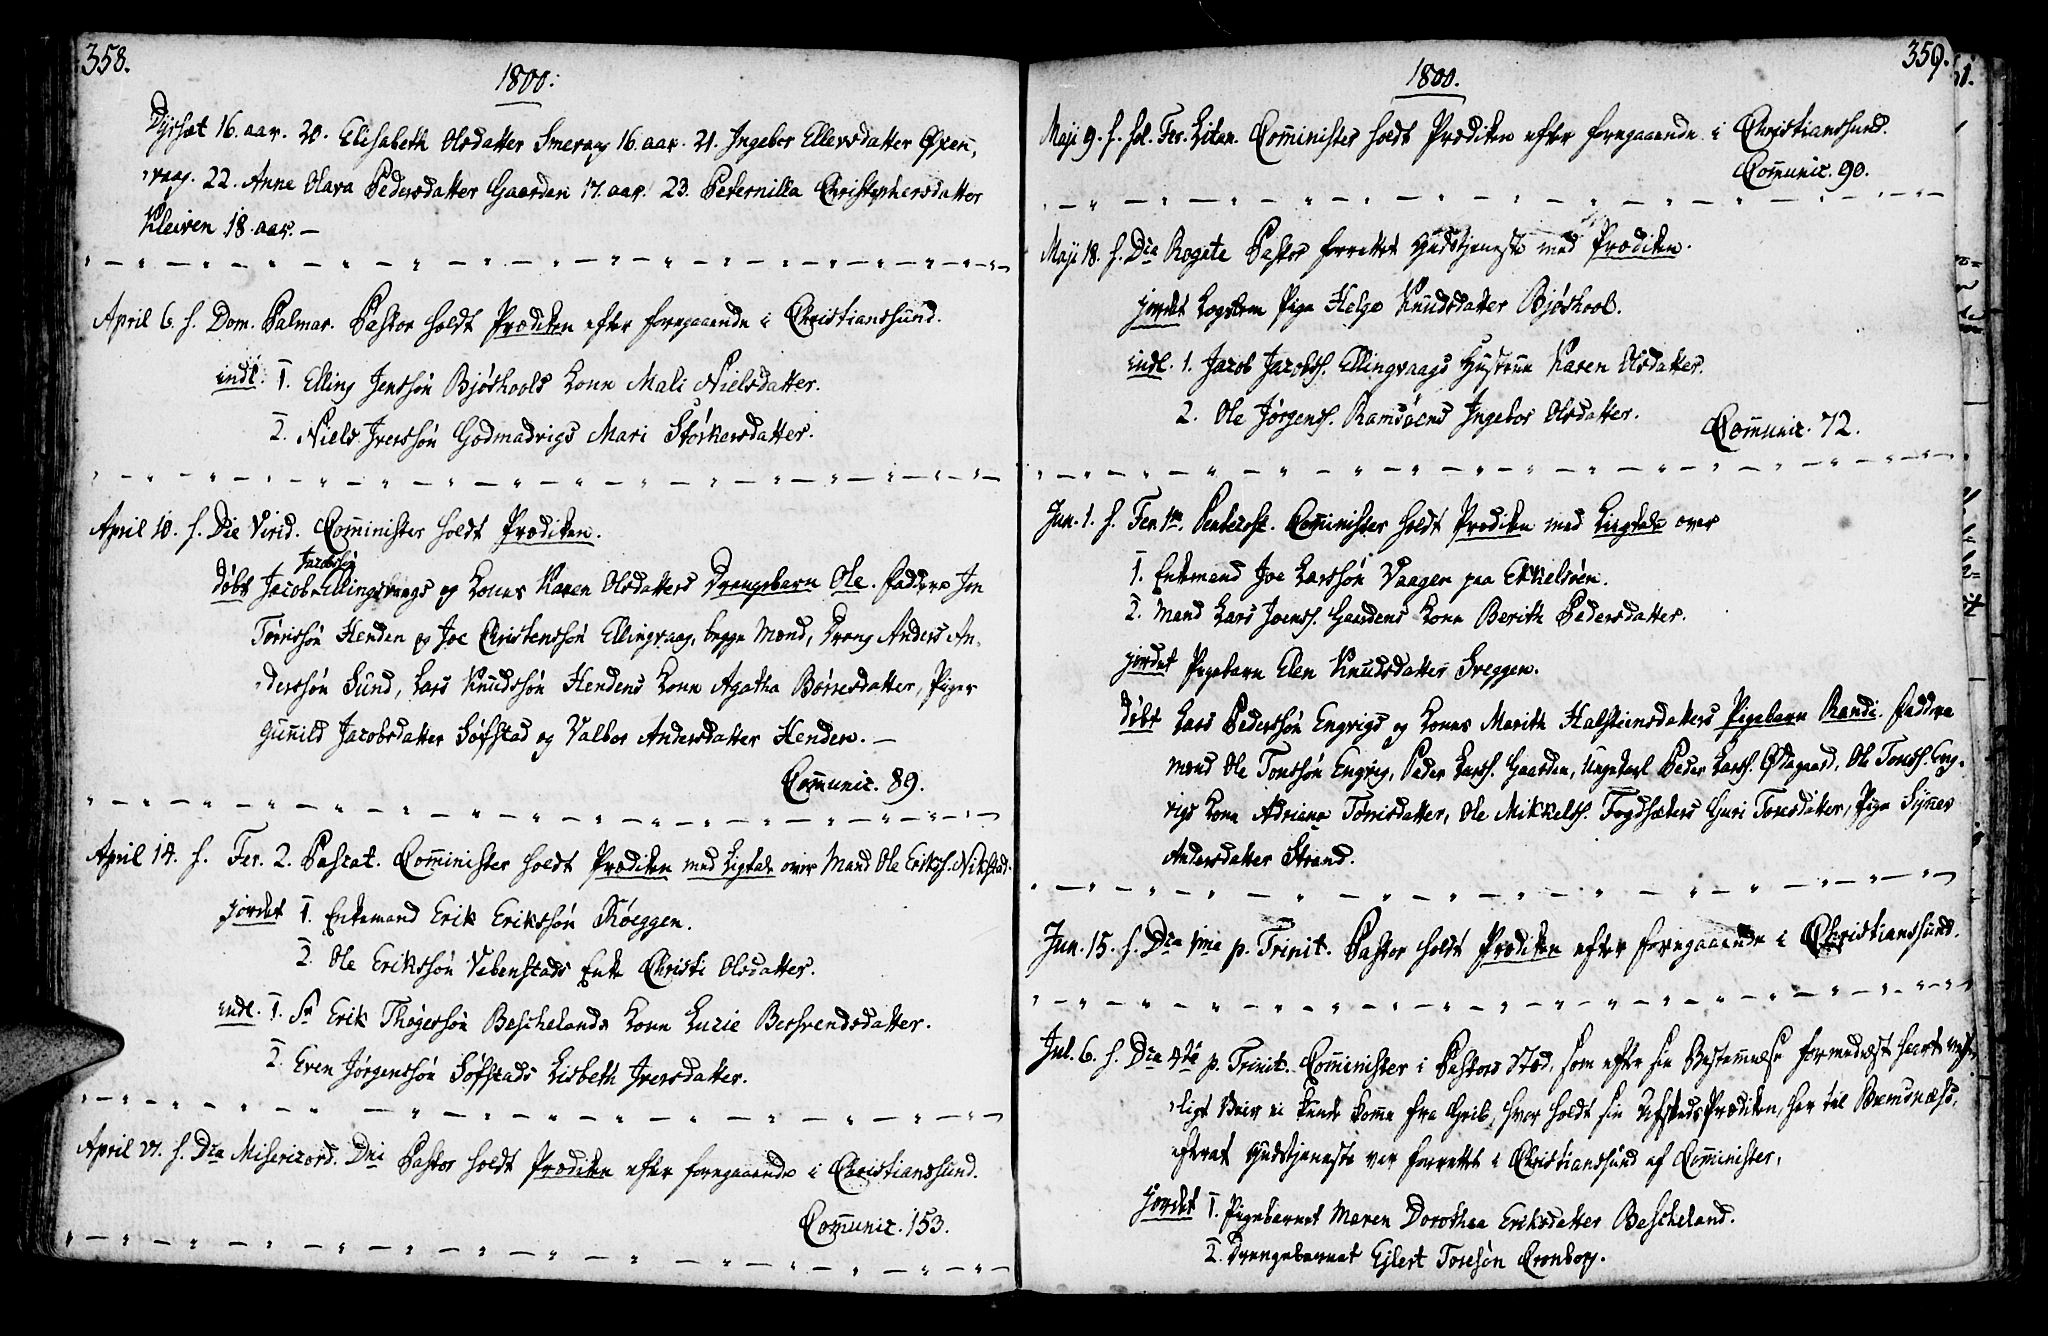 358.
1800.
Dyrsæt 16. aar. 20. Elisabeth Olsdatter Smevaag 16. aar. 21. Ingebor Ellevsdatter Øxen,
vaag. 22. Anne Olava Pedersdatter Gaarden 17. aar. 23. Peternilla Christophersdatter
Kleiven 18. aar. —
April 6. h. Dom. Palmar. Pastor holdt Prædiken efter foregaaende i Christianssund.
indl. 1. Elling Jenssøn Bjøshools Kone Mali Nielsdatter.
2. Niels Iverssøn Godmadvigs Mari Størkersdatter.
April 10. h. Die Virid. Com̄inister holdt Prædiken.
Jacobssøn
døbt Jacob Ellingsvaags og Kones Karen Olsdatters Drængebarn Ole. Faddere Jon
Tørrissøn Henden og Joe Christenssøn Ellingvaag, begge Mænd, Dreng Anders An-
derssøn Sund, Lars Knudssøn Hendens Kone Agatha Børresdatter, Piger
Gun̄ild Jacobsdatter Søfstad og Valbor Andersdatter Henden. —
Com̄unic. 89.
April 14. h. Fer. 2. Pascat. Com̄inister holdt Prædiken med Ligtale over Mand Ole Erikss. Nikstad.
jordet 1. Enkemand Erik Erikssøn Røeggen.
2. Ole Erikssøn Vebenstads Enke Christi Olsdatter.
indl. 1. Sr Erik Thøgersøn Beschelands Kone Lucie Berhrendsdatter.
2. Even Jørgenssøn Søfstads Lisbeth Iversdatter.
April 27. h. Dca Misericord. Dni Pastor holdt Prædiken efter foregaaende i Christianssund.
Com̄unic. 153.
359.
1800.
Maji 9. h. sol. Fer. Litan. Com̄inister holdt Prædiken efter foregaaende i Christianssund.
Com̄unic. 90.
Maji 18. h. Dca Rogate Pastor forrettet Gudstjeneste med Prædiken.
jordet Logslem Pige Helge Knudsdatter Bjøshool.
indl. 1. Jacob Jacobss. Ellingvaags Hustrue Karen Olsdatter.
2. Ole Jørgenss. Ramsøens Ingebor Olsdatter.
Com̄unic. 72.
Jun. 1. h. Fer. 1ma. Pentecost. Com̄inister holdt Prædiken med Ligtale over
1. Enkemand Joe Larssøn Vaagen paa Ekkelsøen.
2. Mand Lars Joenss. Gaardens Kone Berith Pedersdatter.
jordet Pigebarn Elen Knudsdatter Sveggen.
døbt Lars Pederssøn Engvigs og Kones Marith Halsteinsdatters Pigebarn Randi. Faddere
Mænd Ole Tonssøn Engvig, Peder Larss. Gaarden, Ungekarl Peder Larss. Østgaard, Ole Tonss. Eng-
vigs Kone Adriane Tørrisdatter, Ole Mikkelss. Fogdsæters Guri Toresdatter, Pige Synev
Andersdatter Strand.
Jun. 15. h. Dca 1ma p. Trinit. Pastor holdt Prædiken efter foregaaende i Christianssund.
Jul. 6. h. Dca 4te p. Trinit. Com̄inister i Pastors Sted, som efter sin Bestem̄else formedelst hart veyr,
ligt Veir ei kunde kom̄e fra Grib, hvor holdt sin Afskeds Prædiken, her til Bremsnæss,
efterat Gudstjeneste var forrettet i Christianssund af Com̄inister.
jordet 1. Pigebarnet Maren Dorothea Eriksdatter Bescheland.
2. Drengebarnet Ejlert Toresøn Cronborg.